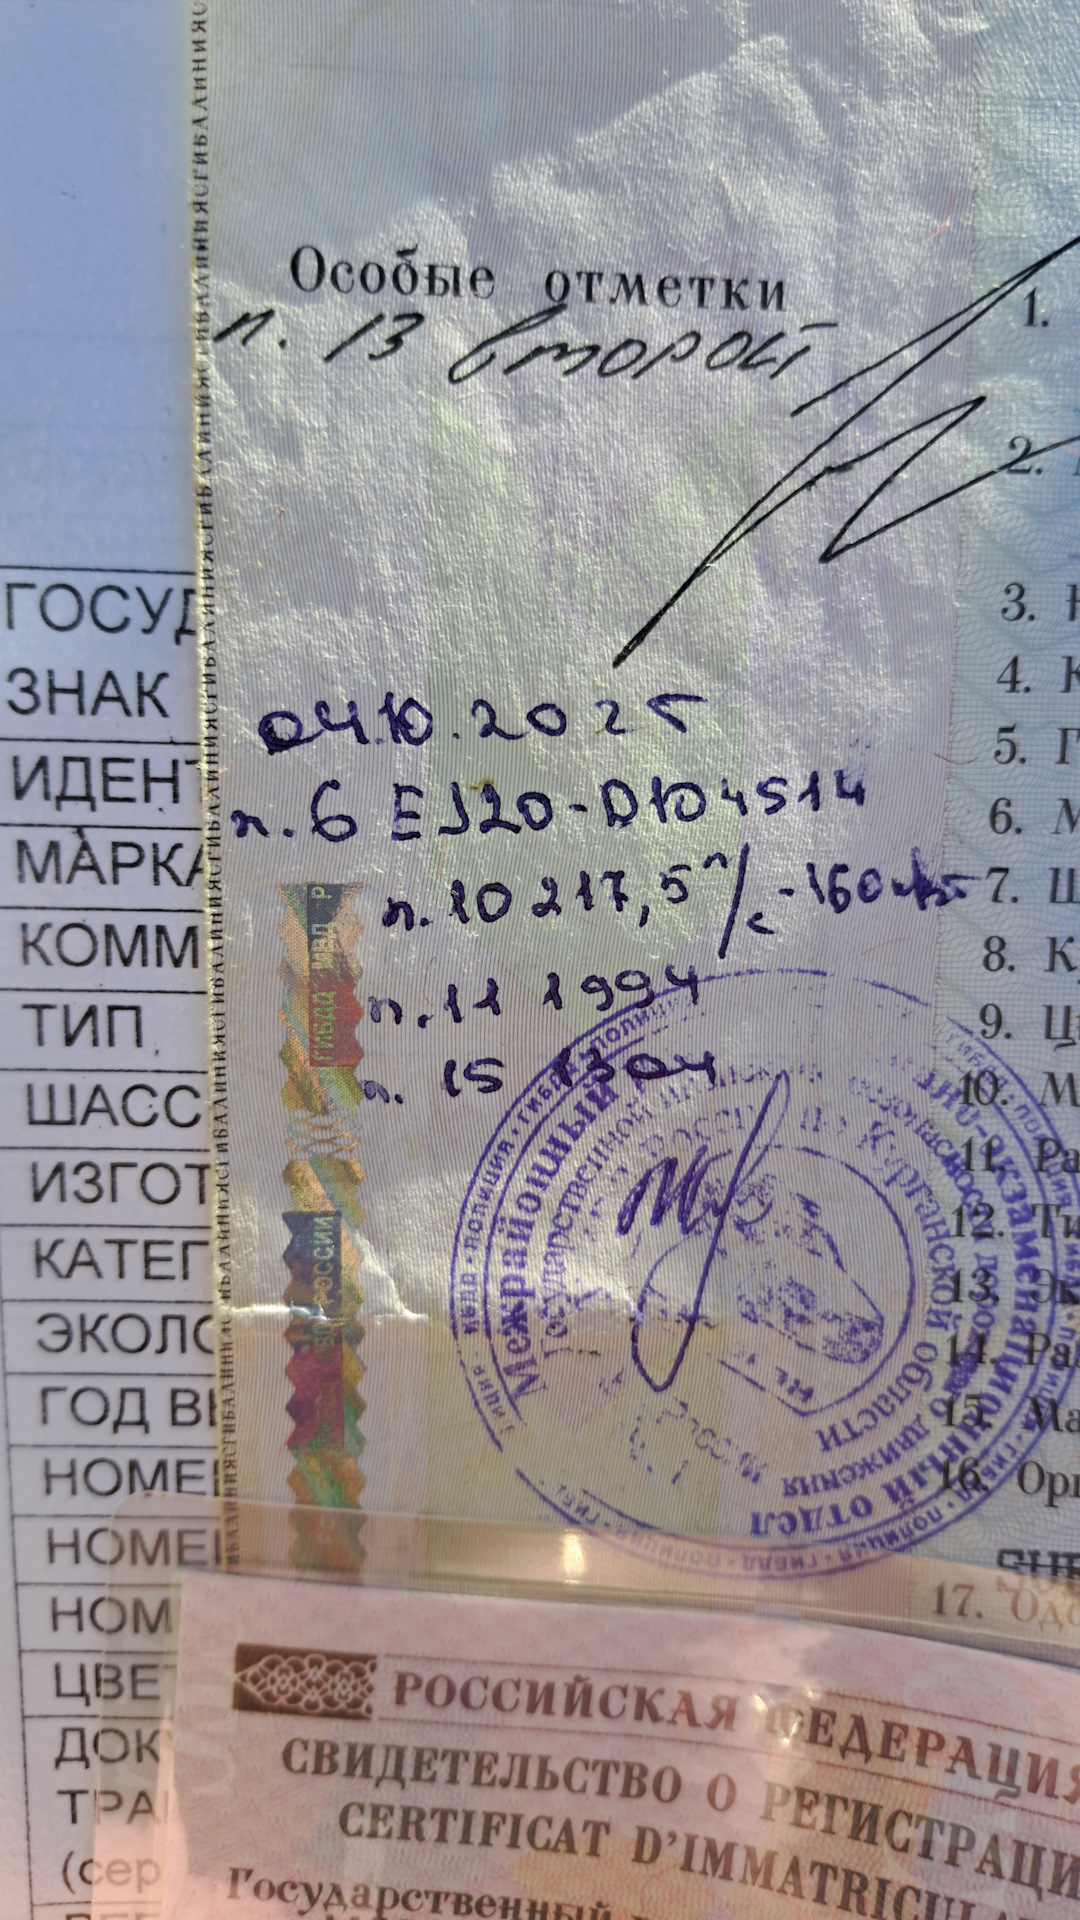 Особые отметки
п. 13 второй
04.10.2025
п. 6 EJ20-D104514
п. 10 217,5 л/с - 160 кВт
п. 11 1994
п. 15 1304
ГОСУД
ЗНАК
ИДЕНТ
МАРКА
КОММ
ТИП
ШАСС
ИЗГОТ
КАТЕГ
ЭКОЛО
ГОД В
НОМЕ
НОМЕ
НОМ
ЦВЕ
ДОК
ТРА
(сер
1.
2.
3.
4. К
5. Г
6. М
7. Ш
8. К
9. Ц
10. М
11. Ра
12. Ти
13. Эк
14. Ра
15. Ма
16. Орг
17. Одо
ГИБДД МВД Р
РОССИИ
Межрайонный
экзаменационный отдел
Государственной
безопасности дорожного движения
России по Курганской области
ПОЛИЦИЯ • ГИБДД • ПОЛИЦИЯ • ГИБДД
РОССИЙСКАЯ ФЕДЕРАЦИЯ
СВИДЕТЕЛЬСТВО О РЕГИСТРАЦИ
CERTIFICAT D'IMMATRICULA
Государственный